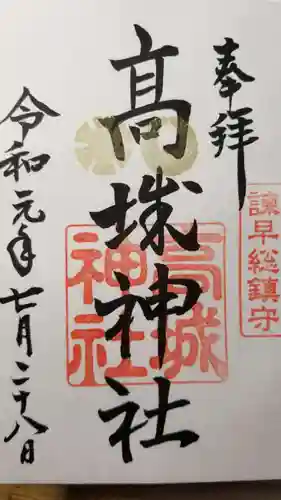 奉拝
諫早総鎮守
髙城神社
高城神社
令和元年七月二十八日